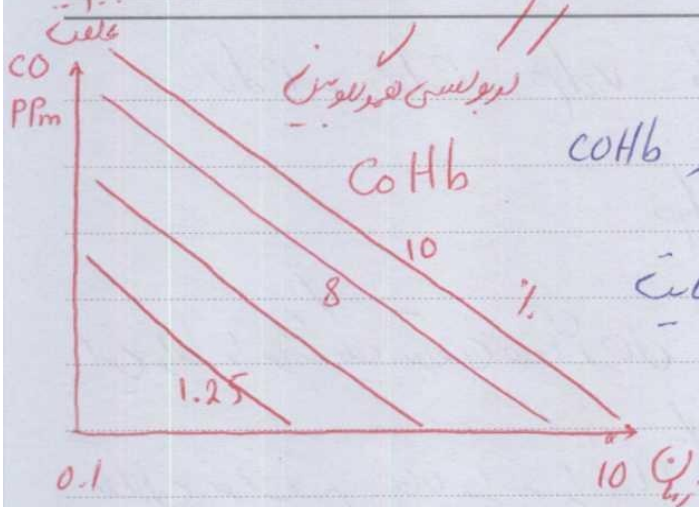 غلظت
CO
PPm
کربوکسی هموگلوبین
COHb
COHb
10
8
%
1.25
0.1
10
زمان